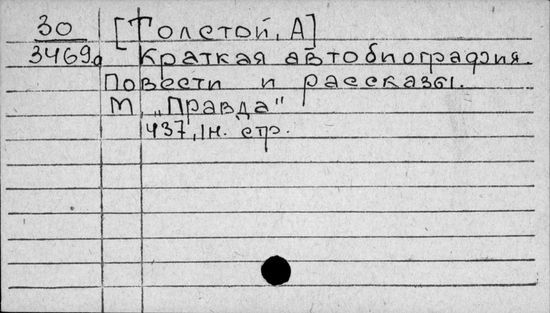 30 [Толстой, А]
3469а Краткая автобиография.
Повести и рассказы.
М, „Правда"
437, 1н. стр.